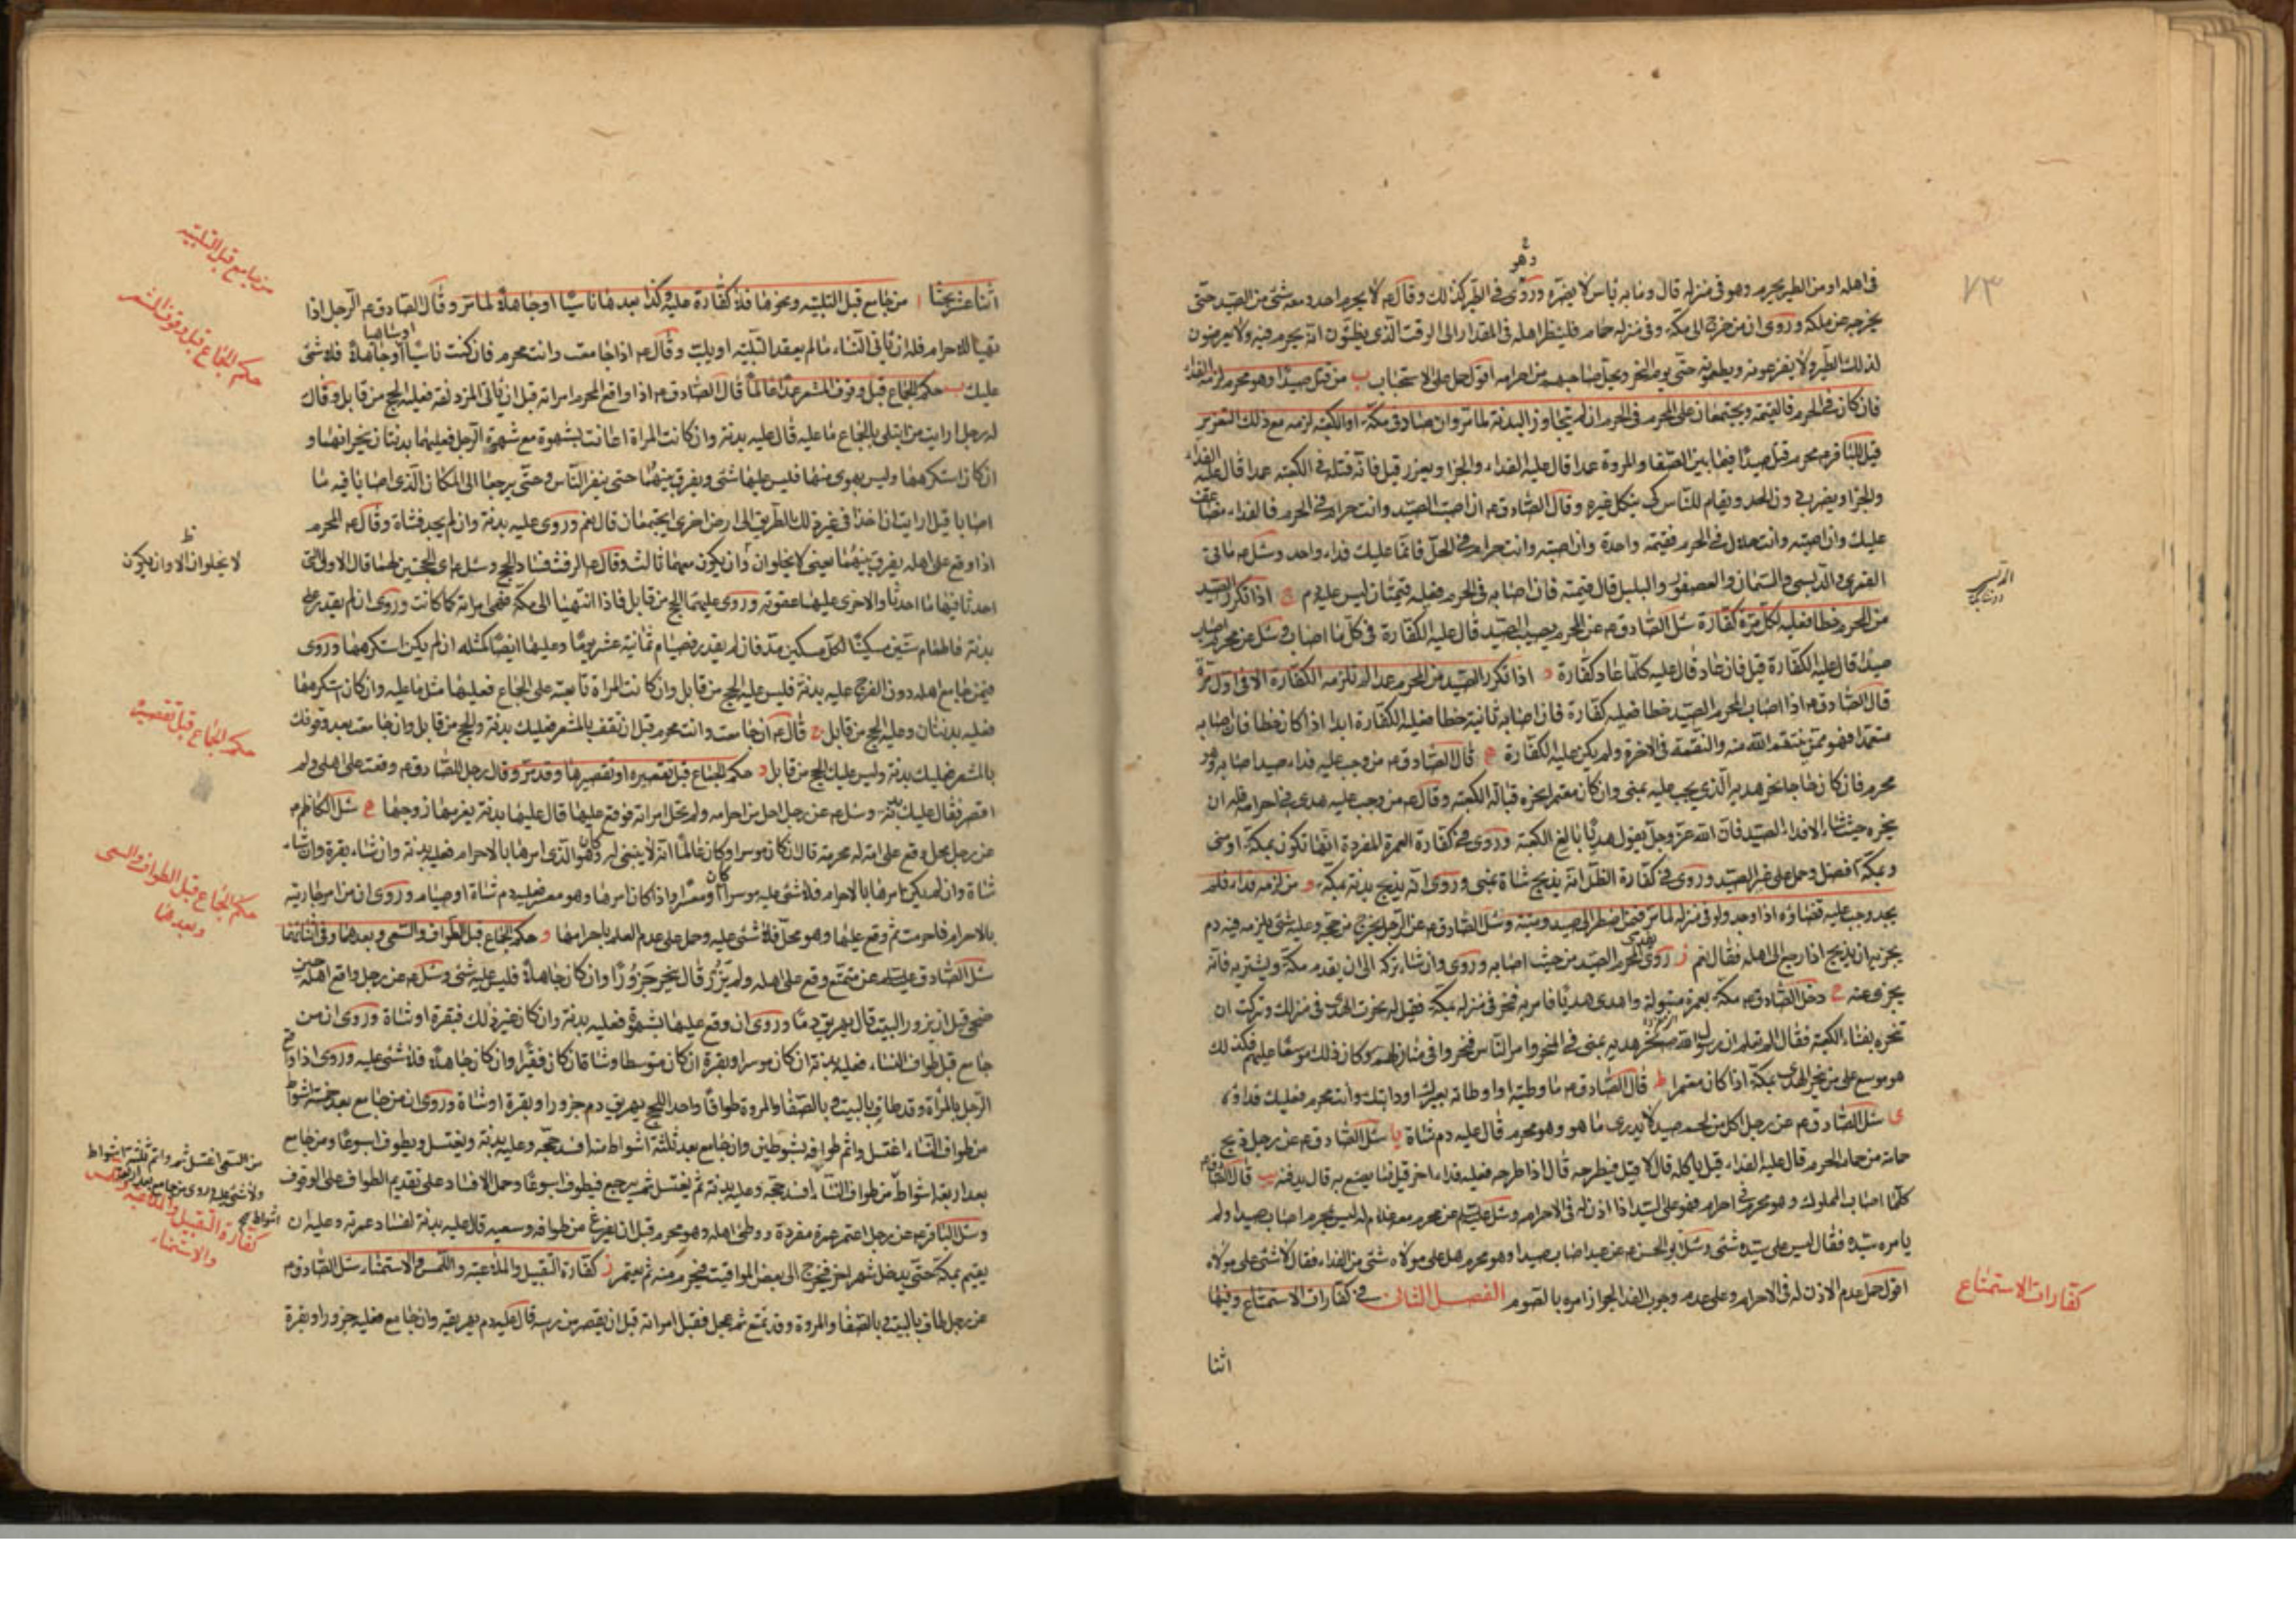 ٧٣
وهو
فى اهله او من الطير يحرم وهو فى منزله قال وما به باس لا يضره وروى فى الطير كذلك وقال ع لا يحرم احد ومعه شئ من الصيد حتى
يخرجه عن ملكه وروى ان من خرج الى مكة وفى منزله حمام فلينظر اهله فى المقدار الى الوقت الذى يظنون انه يحرم فيه ولا يعرضون
لذلك الطير ولا يفزعونه ويطعمونه حتى يوم النحر ويحل صاحبهم من احرامه اقول حمل على الاستحباب ب من قتل صيدا وهو محرم لزمه الفداء
فان كان فى الحرم فالقيمة ويجتمعان على المحرم فى الحرم ان لم يتجاوز البدنة لما مر وان صاد فى مكة او الكعبة لزمه مع ذلك التعزير
قيل للباقر ع محرم قتل صيدا فيما بين الصفا والمروة عمدا قال عليه الفداء والجزا ويعزر قيل فانه قتله فى الكعبة عمدا قال عليه الفداء
والجزا ويضرب دون الحد ويقام للناس كى ينكل غيره وقال الصادق ع ان اصبت الصيد وانت حرام فى الحرم فالفداء مضاعف
عليك وان اصبته وانت حلال فى الحرم فقيمة واحدة وان اصبته وانت حرام فى الحل فانما عليك فداء واحد وسئل ع ما فى
القمرى والدبسى والسمان والعصفور والبلبل قال قيمته فان اصابه فى الحرم فعليه قيمتان ليس عليه دم ج اذا تكرر الصيد
من المحرم خطأ فعليه لكل مرة كفارة سئل الصادق ع عن المحرم يصيب الصيد قال عليه الكفارة فى كل ما اصاب وسئل عن محرم اصاب
صيدا قال عليه الكفارة قيل فان عاد قال عليه كلما عاد كفارة د اذا تكرر الصيد من المحرم عمدا لم تلزمه الكفارة الا فى اول مرة
قال الصادق ع اذا اصاب المحرم الصيد خطأ فعليه كفارة فان اصابه ثانية خطأ فعليه الكفارة ابدا اذا كان خطأ فان اصابه
متعمدا فهو ممن ينتقم الله منه والنقمة فى الاخرة ولم يكن عليه الكفارة ه قال الصادق ع من وجب عليه فداء صيد اصابه وهو
محرم فان كان حاجا نحر هديه الذى يجب عليه بمنى وان كان معتمرا نحره قبالة الكعبة وقال ع من وجب عليه هدى فى احرامه فله ان
ينحره حيث شاء الا فداء الصيد فان الله عز وجل يقول هديا بالغ الكعبة وروى فى كفارة العمرة المفردة انها تكون بمكة او منى
وبمكة افضل وحمل على غير الصيد وروى فى كفارة الظل انه يذبح شاة بمنى وروى انه يذبح بدنة بمكة و من لزمه فداء فلم
يجد وجب عليه قضاؤه اذا وجد ولو فى منزله لما مر فيمن اضطر الى صيد وميتة وسئل الصادق ع عن الرجل يخرج من حجه وعليه شئ يلزمه فيه دم
يجزيه ان يذبح اذا رجع الى اهله فقال نعم ز روى يفدى المحرم الصيد من حيث اصابه وروى وان شاء تركه الى ان يقدم مكة ويشتريه فانه
يجزى عنه ح دخل الصادق ع مكة بعمرة مبتولة واهدى هديا فامر به فنحر فى منزله بمكة فقيل له نحرت الهدى فى منزلك وتركت ان
تنحره بفناء الكعبة فقال الم تعلم ان رسول الله ص نحر هديه بمنى فى المنحر وامر الناس فنحروا فى منازلهم وكان ذلك موسعا عليهم فكذلك
هو موسع على من نحر الهدى بمكة اذا كان معتمرا ط قال الصادق ع ما وطئته او اوطأته بعيرك او دابتك وانت محرم فعليك فداؤه
ى سئل الصادق ع عن رجل اكل من لحم صيد لا يدرى ما هو وهو محرم قال عليه دم شاة يا سئل الصادق ع عن رجل ذبح
حمامة من حمام الحرم قال عليه الفداء قيل ياكله قال لا قيل فيطرحه قال اذا طرحه فعليه فداء اخر قيل فما يصنع به قال يدفنه يب قال الصادق ع
كلما اصاب المملوك وهو محرم فى احرامه فهو على السيد اذا اذن له فى الاحرام وسئل عليه السلام عن محرم معه غلام له ليس بمحرم اصاب صيدا ولم
يامره سيده فقال ليس على سيده شئ وسئل ابو الحسن ع عن عبد اصاب صيدا وهو محرم هل على مولاه شئ من الفداء فقال لا شئ على مولاه
اقول حمل عدم الاذن له فى الاحرام وعلى عدم وجوب الفداء لجواز امره بالصوم الفصل الثانى فى كفارات الاستمتاع وفيها
اثنا
كفارات الاستمتاع
اثنا عشر بحثا ا من جامع قبل التلبية ونحوها فلا كفارة عليه وكذا بعدها ناسيا او جاهلا لما مر وقال الصادق ع الرجل اذا
تهيأ للاحرام فله ان ياتى النساء ما لم يعقد التلبية او يلب وقال ع اذا جامعت وانت محرم فان كنت ناسيا او ساهيا او جاهلا فلا شئ
عليك ب حكم الجماع قبل وقوف المشعر عمدا عالما قال الصادق ع اذا واقع المحرم امراته قبل ان ياتى المزدلفة فعليه الحج من قابل وقال
له رجل ارايت من ابتلى بالجماع ما عليه قال عليه بدنة وان كانت المراة اعانت بشهوة مع شهوة الرجل فعليهما بدنتان ينحرانهما و
ان كان استكرهها وليس بهوى منها فليس عليها شئ ويفرق بينهما حتى ينفر الناس وحتى يرجعا الى المكان الذى اصابا فيه ما
اصابا قيل ارايت ان اخذا فى غير ذلك الطريق الى ارض اخرى ايجتمعان قال نعم وروى عليه بدنة وان لم يجد فشاة وقال ع المحرم
اذا وقع على اهله يفرق بينهما يعنى لا يخلوان وان يكون معهما ثالث وقال ع الرفث فساد الحج وسئل ع اى الحجتين لهما قال الاولى التى
احدثا فيها ما احدثا والاخرى عليهما عقوبة وروى عليهما الحج من قابل فاذا انتهيا الى مكة فهى امراته كما كانت وروى ان لم يقدر على
بدنة فاطعام ستين مسكينا لكل مسكين مد فان لم يقدر فصيام ثمانية عشر يوما وعليها ايضا كمثله ان لم يكن استكرهها وروى
فيمن جامع اهله دون الفرج عليه بدنة فليس عليه الحج من قابل وان كانت المراة تابعته على الجماع فعليها مثل ما عليه وان كان استكرهها
فعليه بدنتان وعليه الحج من قابل ج قال ع ان جامعت وانت محرم قبل ان تقف بالمشعر فعليك بدنة والحج من قابل وان جامعت بعد وقوفك
بالمشعر فعليك بدنة وليس عليك الحج من قابل د حكم الجماع قبل تقصيره او تقصيرها وقد مر وقال رجل للصادق ع وقعت على اهلى ولم
اقصر فقال عليك بدنة وسئل ع عن رجل احل من احرامه ولم تحل امراته فوقع عليها قال عليها بدنة يغرمها زوجها ه سئل الكاظم ع
عن رجل محل وقع على امة له محرمة قال ان كان موسرا وكان عالما انه لا ينبغى له وكان هو الذى امرها بالاحرام فعليه بدنة وان شاء بقرة وان شاء
شاة وان لم يكن امرها بالاحرام فلا شئ عليه موسرا كان او معسرا واذا كان امرها وهو معسر فعليه دم شاة او صيام وروى ان من امر جاريته
بالاحرام فاحرمت ثم وقع عليها وهو محل فلا شئ عليه وحمل على عدم العلم باحرامها و حكم الجماع قبل الطواف والسعى وبعدهما وفى اثنائهما
سئل الصادق عليه السلام عن متمتع وقع على اهله ولم يزر قال ينحر جزورا وان كان جاهلا فليس عليه شئ وسئل ع عن رجل واقع اهله حين
ضحى قبل ان يزور البيت قال يهريق دما وروى ان وقع عليها بشهوة فعليه بدنة وان كان غير ذلك فبقرة او شاة وروى ان من
جامع قبل طواف النساء فعليه بدنة ان كان موسرا وبقرة ان كان متوسطا وشاة ان كان فقيرا وان كان جاهلا فلا شئ عليه وروى اذا واقع
الرجل بالمراة وقد طاف بالبيت وبالصفا والمروة طوافا واحدا للحج يهريق دم جزور او بقرة او شاة وروى ان من جامع بعد خمسة اشواط
من طواف النساء اغتسل واتم طوافه بشوطين وان جامع بعد ثلثة اشواط فقد افسد حجه وعليه بدنة ويغتسل ويطوف اسبوعا ومن جامع
بعد اربعة اشواط من طواف النساء افسد حجه وعليه بدنة ثم يغتسل ثم يرجع فيطوف اسبوعا وحمل الافساد على تقديم الطواف على الوقوف
وسئل الباقر ع عن رجل اعتمر عمرة مفردة ووطى اهله وهو محرم قبل ان يفرغ من طوافه وسعيه قال عليه بدنة لفساد عمرته وعليه ان
يقيم بمكة حتى يدخل شهر اخر فيخرج الى بعض المواقيت فيحرم منه ثم يعتمر ز كفارة التقبيل والملاعبة واللمس والاستمناء سئل الصادق ع
عن رجل طاف بالبيت وبالصفا والمروة وقد تمتع ثم عجل فقبل امراته قبل ان يقصر من راسه قال عليه دم يهريقه وان جامع فعليه جزور او بقرة
من جامع قبل التلبية
حكم الجماع قبل وقوف المشعر
ظ
لا يخلوان الا وان يكون
حكم الجماع قبل تقصير
حكم الجماع قبل الطواف والسعى
وبعدهما
من السعى اغتسل ثم واتم ثلثة اشواط
كفارة التقبيل والملاعبة واللمس
والاستمناء